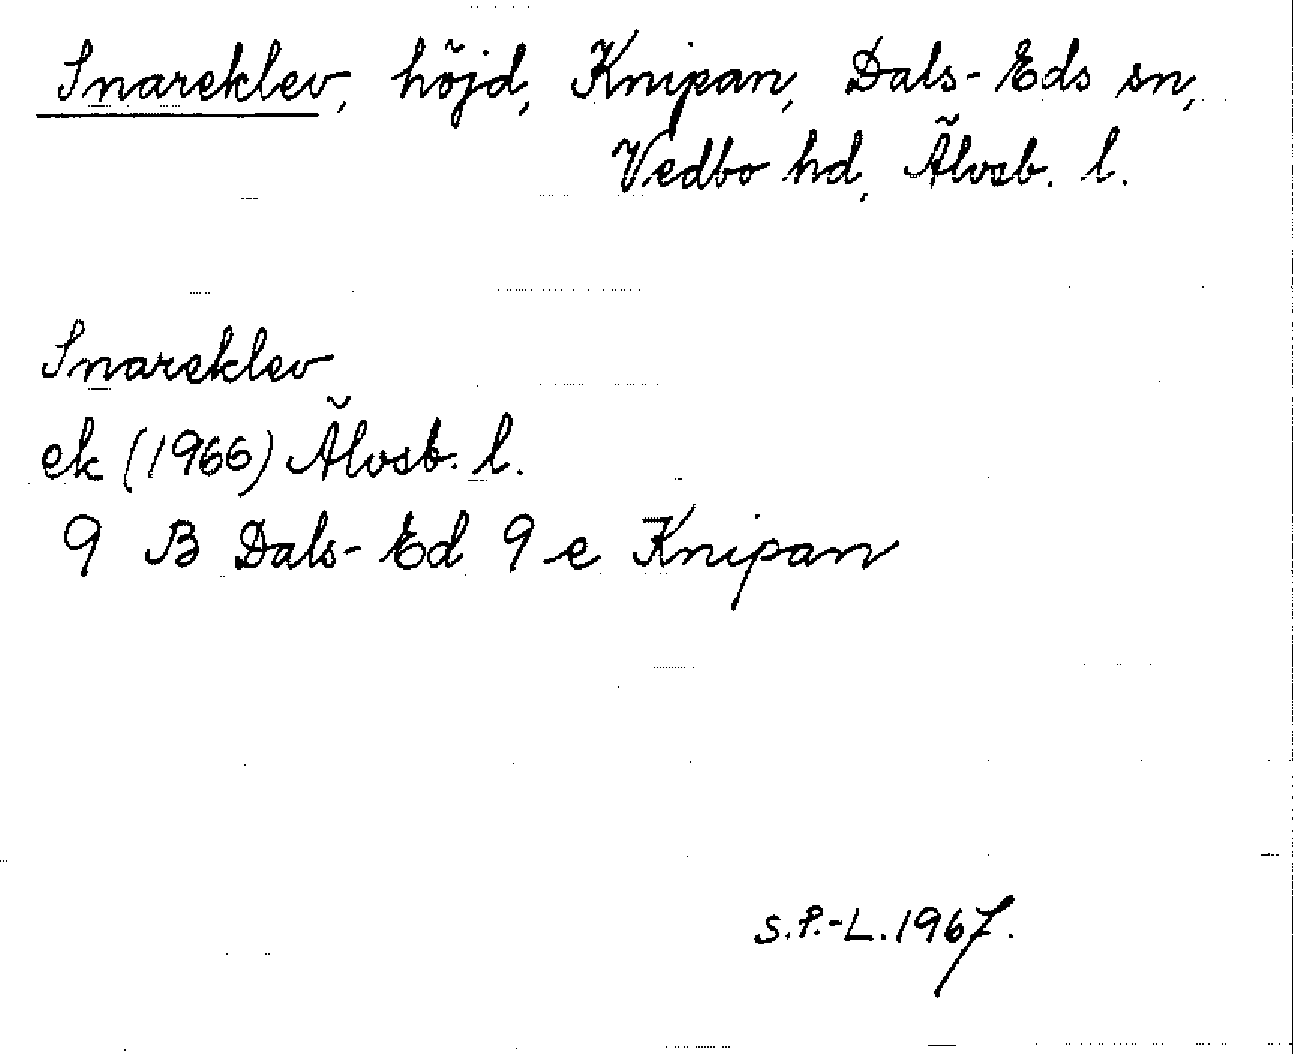 Snareklev, höjd, Knipan, Dals-Eds sn,
Vedbo hd, Älvsb. l.
Snareklev
ek (1966) Älvsb. l.
9 B Dals-Ed 9 e Knipan
S.P.-L. 1967.